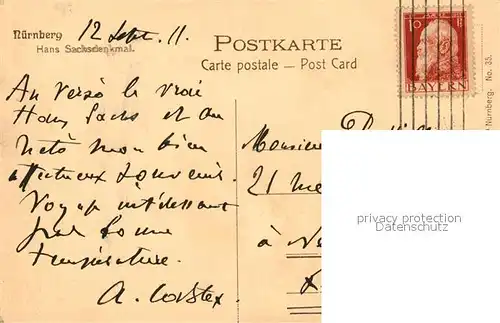 Nürnberg
Hans Sachsdenkmal.
12 Sept. 11.
POSTKARTE
Carte postale — Post Card
10 Pf
BAYERN
Nürnberg. No. 35.
Au verso le vrai
Hans Sachs et au
recto mon bien
affectueux souvenir.
Voyage intéressant
par bonne
température.
Monsieur
21
à
privacy protection
Datenschutz